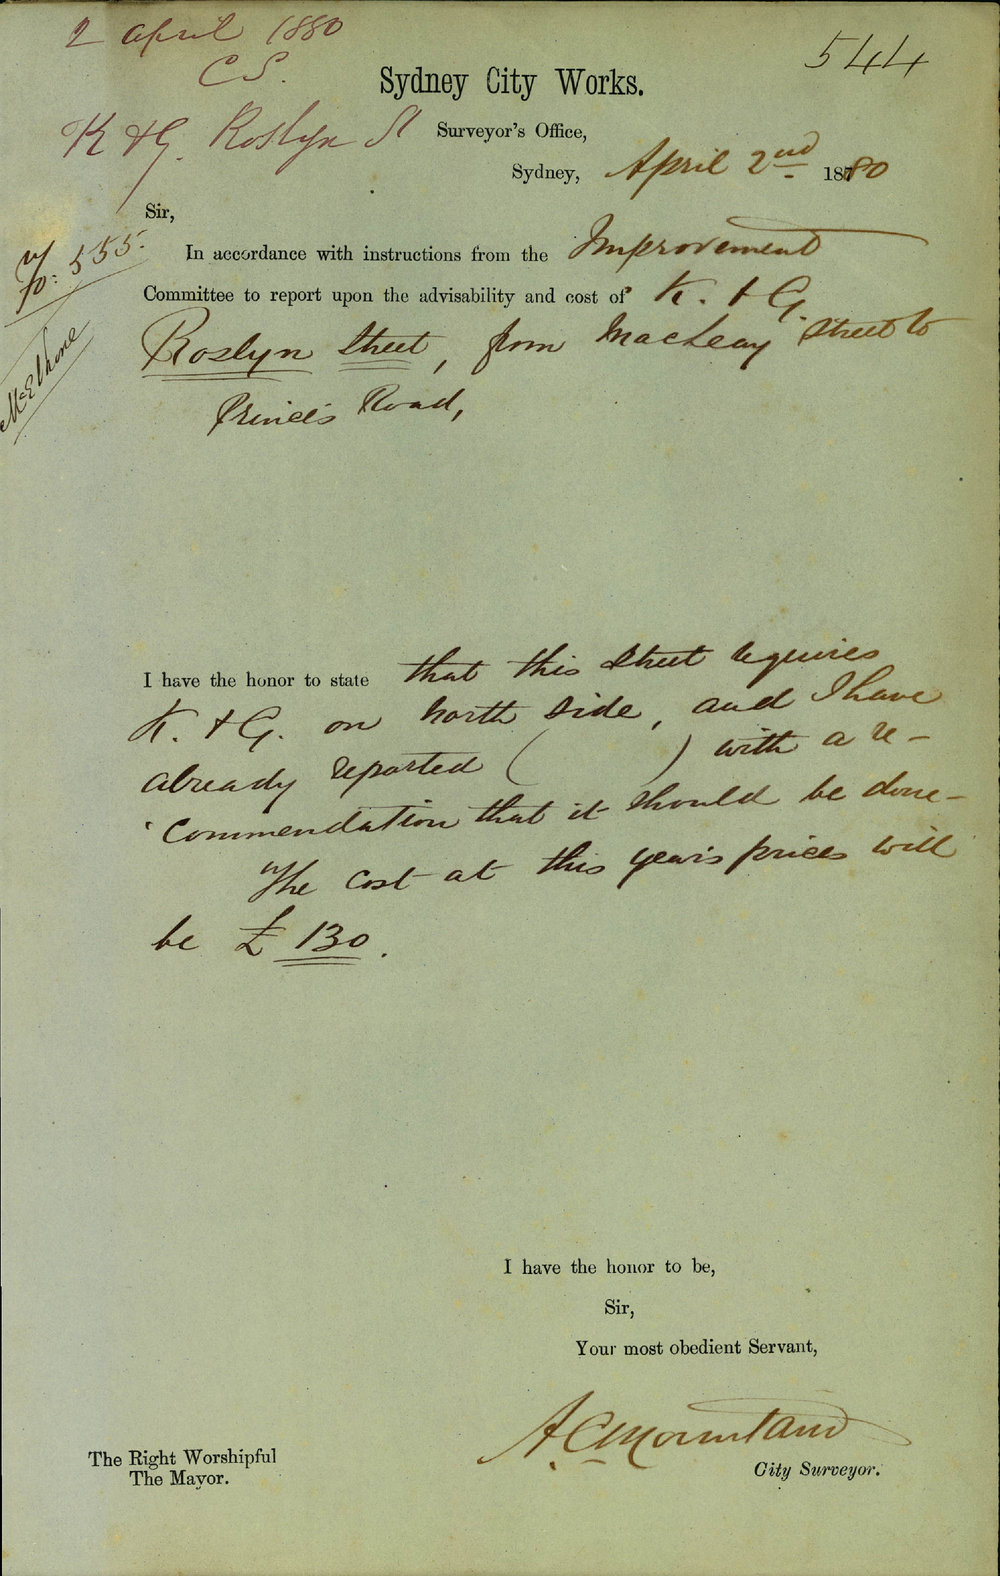 2 April 1880
C S.
K & G. Roslyn St
544
Sydney City Works.
Surveyor's Office,
Sydney, April 2nd 1880
Sir,
No: 555.
McElhone
In accordance with instructions from the Improvement
Committee to report upon the advisability and cost of K. & G.
Roslyn Street, from Macleay Street to
Princes Road,
I have the honor to state that this Street requires
K. & G. on North Side, and I have
already reported ( ) with a re-
commendation that it should be done-
The cost at this year's prices will
be £130.
I have the honor to be,
Sir,
Your most obedient Servant,
A.C. Mountain
City Surveyor.
The Right Worshipful
The Mayor.